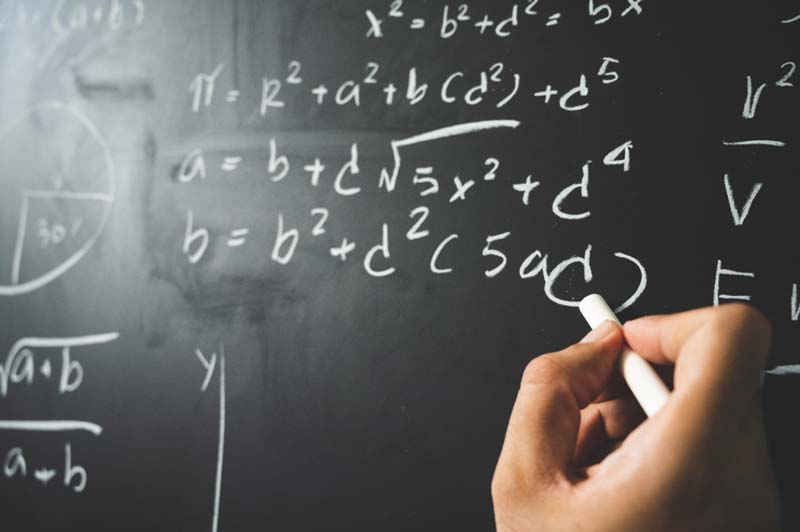 x² = b² + d² = bx
π = R² + a² + b(d²) + d⁵
a = b + d√5x² + d⁴
b = b² + d²(5ad)
30'
√a+b
a+b
y
V²
V
E